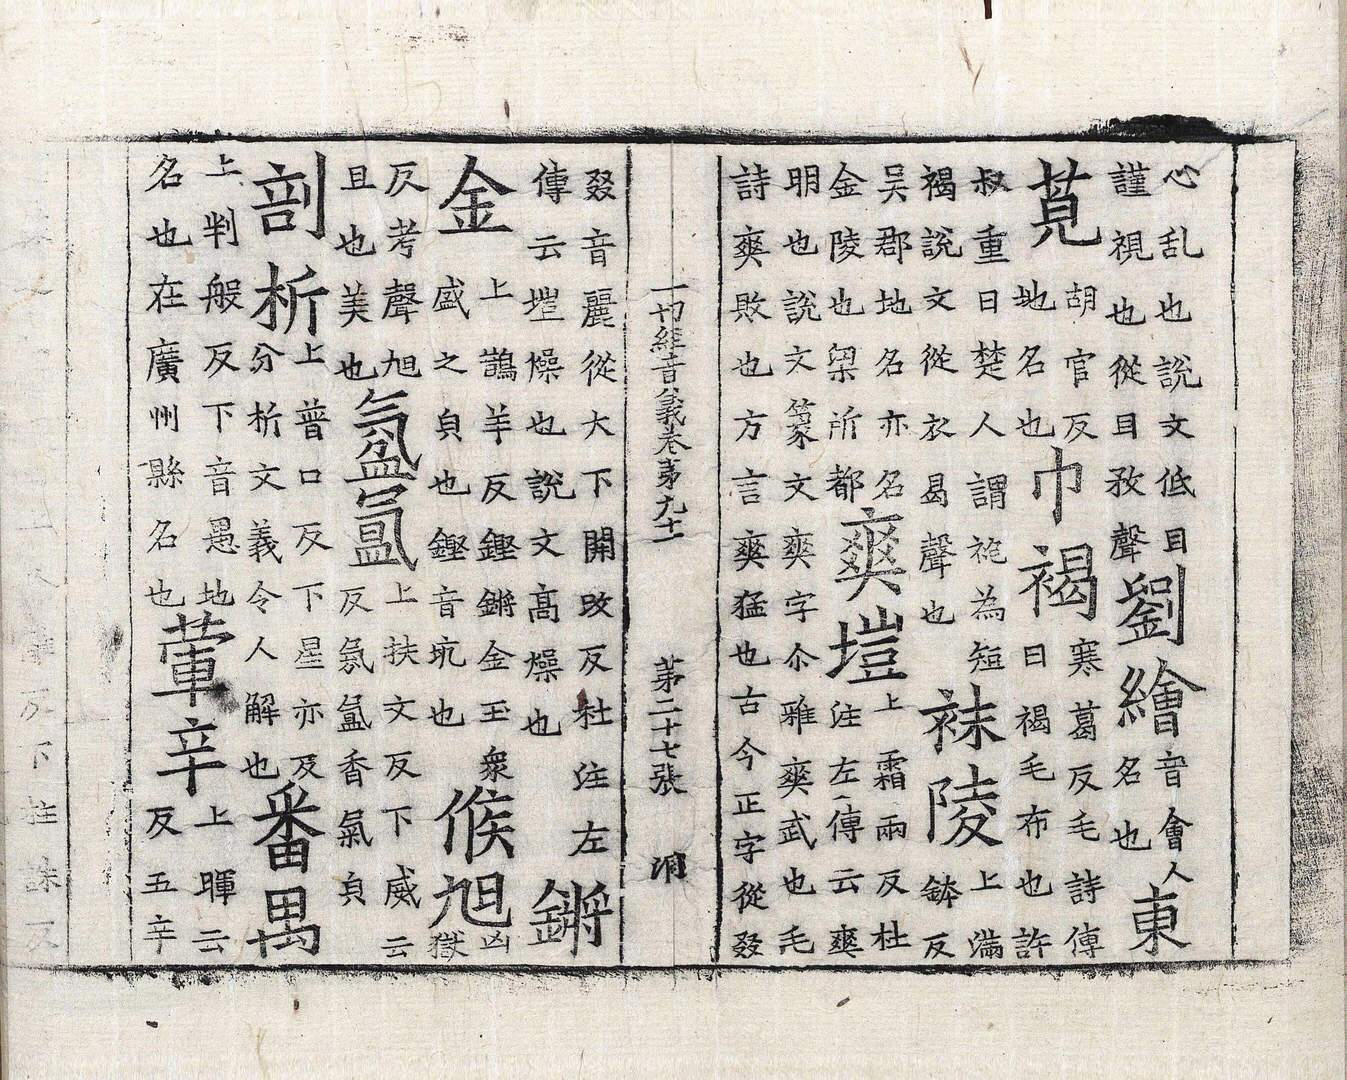 心乱也說文低目
謹視也從目孜聲
劉繪
音會人
名也
東
莧
胡官反
地名也
巾褐
寒葛反毛詩傳
曰褐毛布也許
叔重曰楚人謂袍為短
褐說文從衣曷聲也
袜陵
上滿
鉢反
吳郡地名亦名
金陵也梁所都
爽塏
上霜兩反杜
注左傳云爽
明也說文篆文爽字尒雅爽武也毛
詩爽敗也方言爽猛也古今正字從叕
一切經音義卷苐九十一 苐二十七張 洞
叕音麗從大下開改反杜注左
傳云塏燥也說文髙燥也
鏘
金
上鶬羊反鏗鏘金玉衆
盛之皃也鏗音坑也
候旭
凶
獄
反考聲旭
且也美也
氳
上扶文反下威云
反氛氳香氣皃
剖析
上普口反下星亦反
分析文義令人解也
番禺
上判般反下音愚地
名也在廣州縣名也
葷辛
上暉云
反五辛